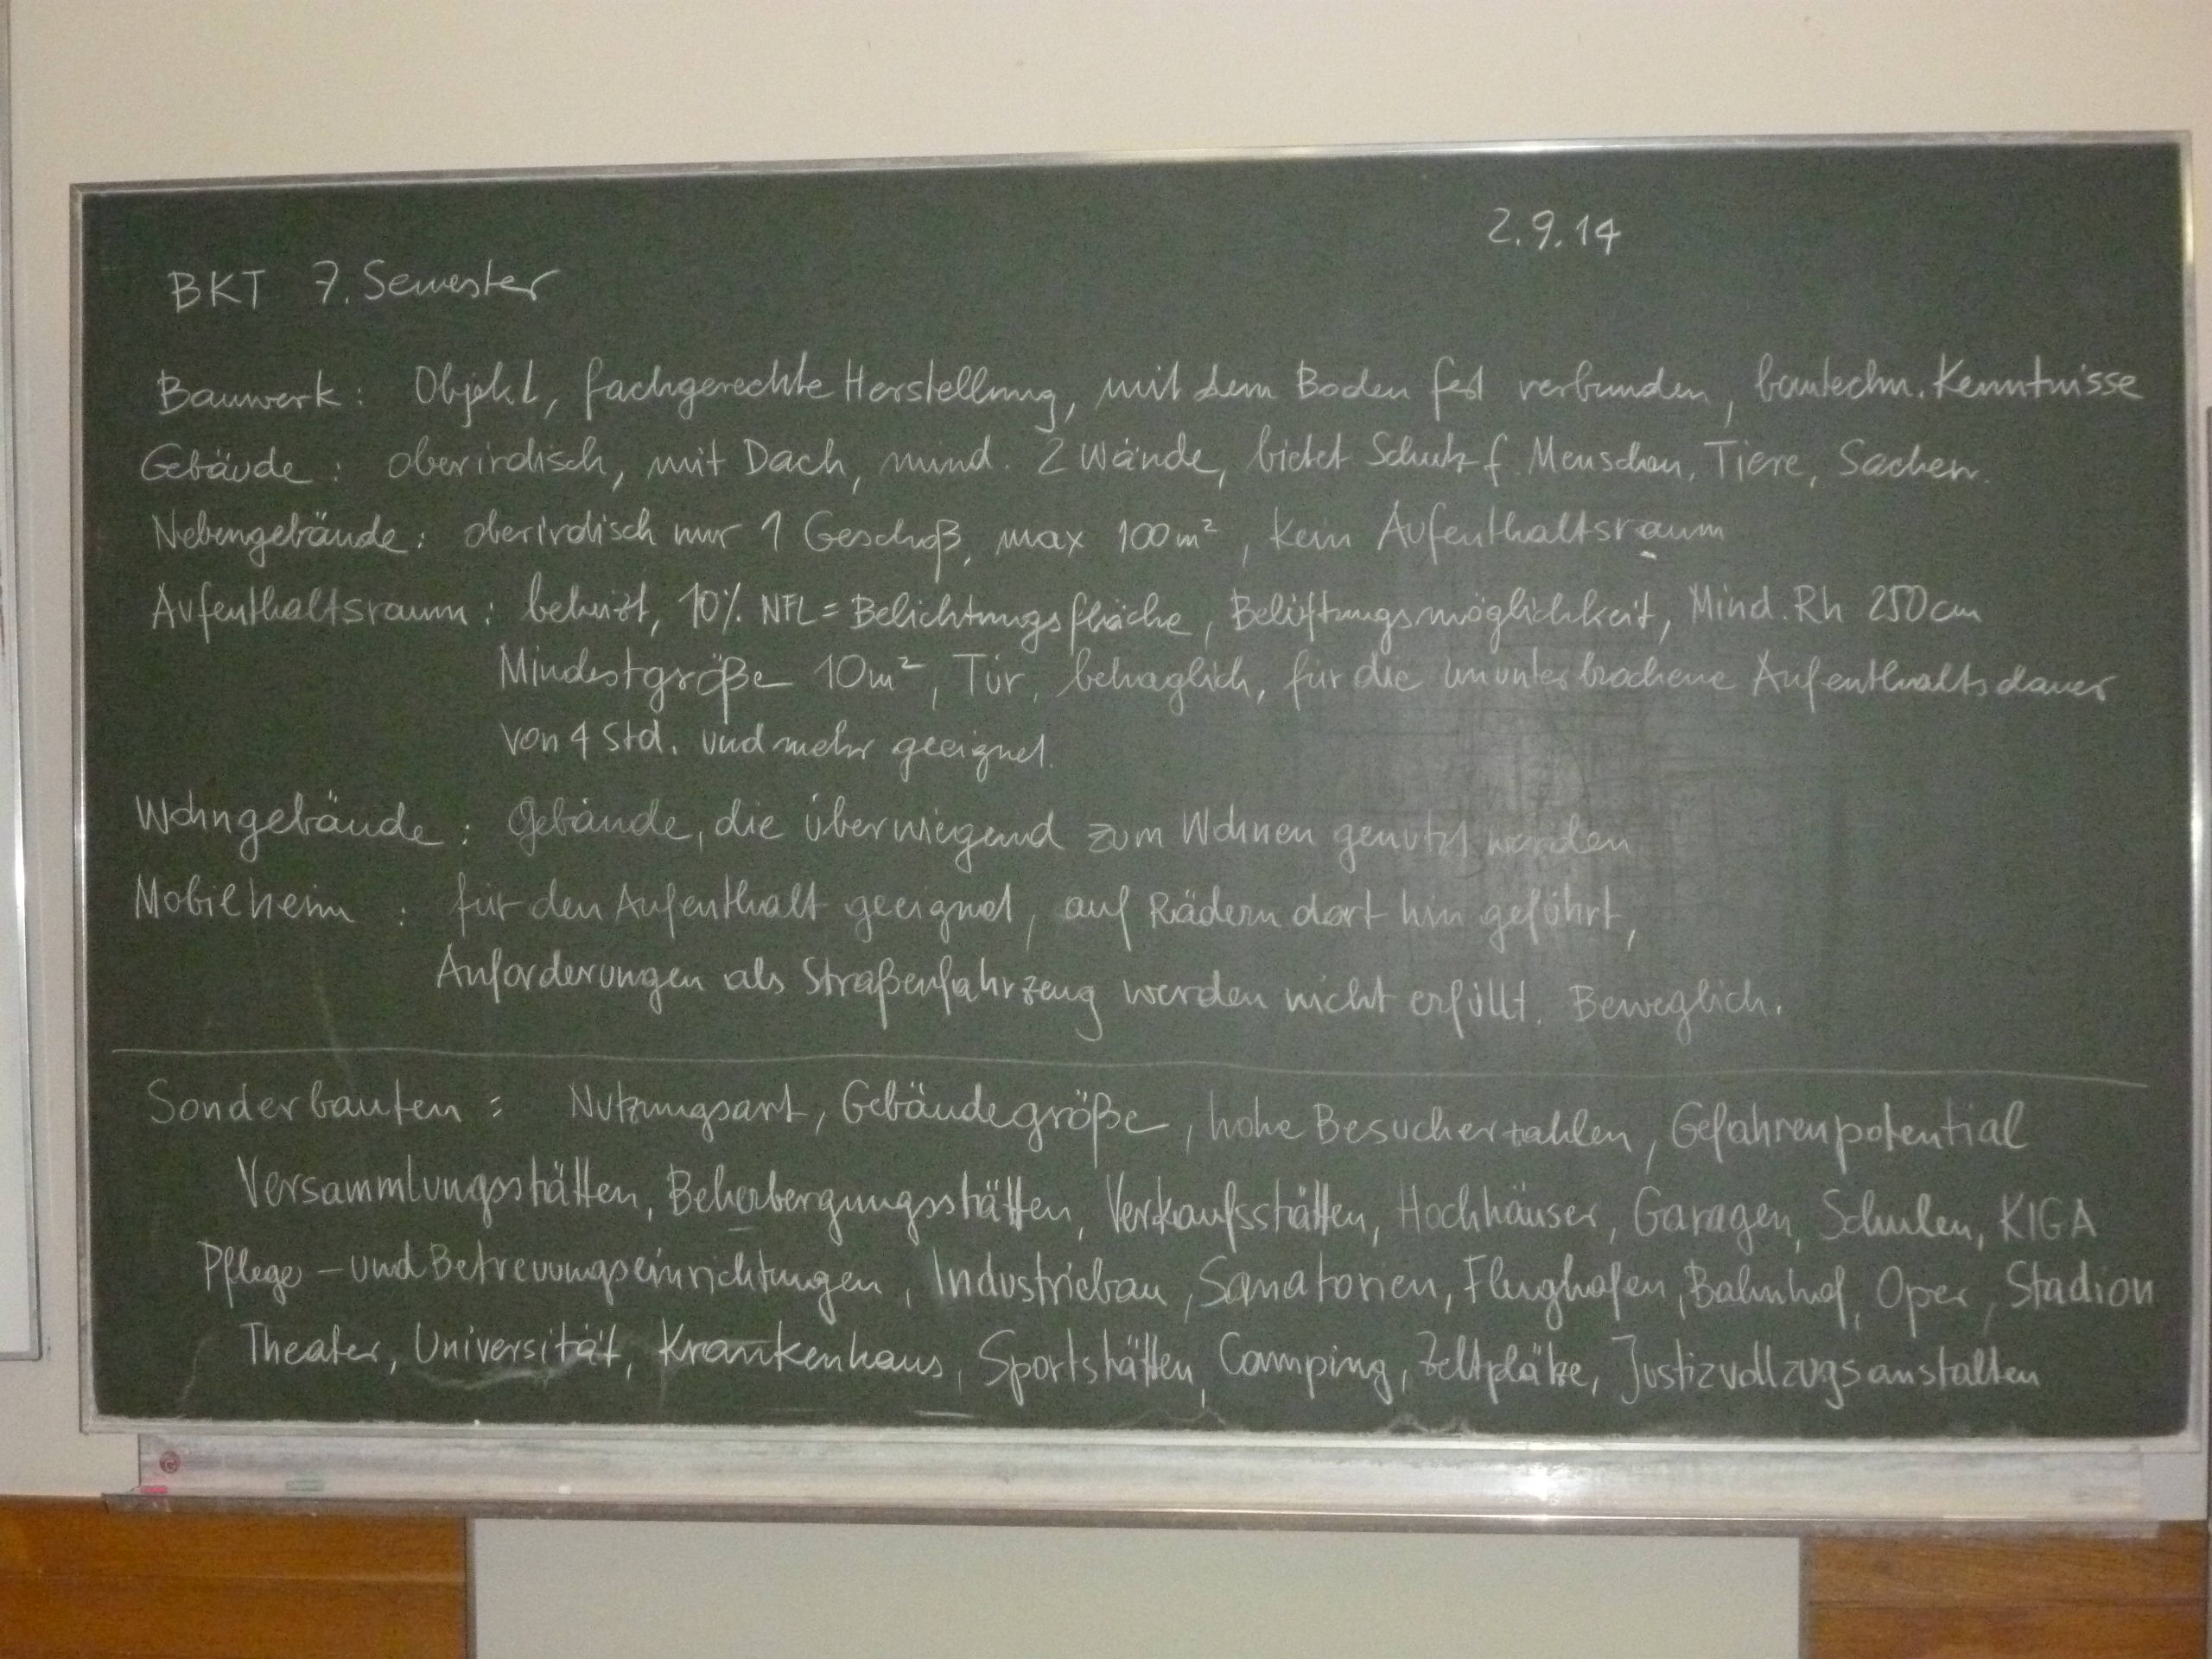 2.9.14
BKT 7. Semester
Bauwerk: Objekt, fachgerechte Herstellung, mit dem Boden fest verbunden, bautechn. Kenntnisse
Gebäude: oberirdisch, mit Dach, mind. 2 Wände, bietet Schutz f. Menschen, Tiere, Sachen.
Nebengebäude: oberirdisch nur 1 Geschoß, max 100m², kein Aufenthaltsraum
Aufenthaltsraum: beheizt, 10% NFL = Belichtungsfläche, Belüftungsmöglichkeit, Mind. Rh 250cm
Mindestgröße 10m², Tür, behaglich, für die ununterbrochene Aufenthaltsdauer
von 4 Std. und mehr geeignet.
Wohngebäude: Gebäude, die überwiegend zum Wohnen genutzt werden
Mobilheim: für den Aufenthalt geeignet, auf Rädern dort hin geführt,
Anforderungen als Straßenfahrzeug werden nicht erfüllt. Beweglich.
Sonderbauten: Nutzungsart, Gebäudegröße, hohe Besucherzahlen, Gefahrenpotential
Versammlungsstätten, Beherbergungsstätten, Verkaufsstätten, Hochhäuser, Garagen, Schulen, KIGA
Pflege- und Betreuungseinrichtungen, Industriebau, Sanatorien, Flughafen, Bahnhof, Oper, Stadion
Theater, Universität, Krankenhaus, Sportstätten, Camping, Zeltplätze, Justizvollzugsanstalten